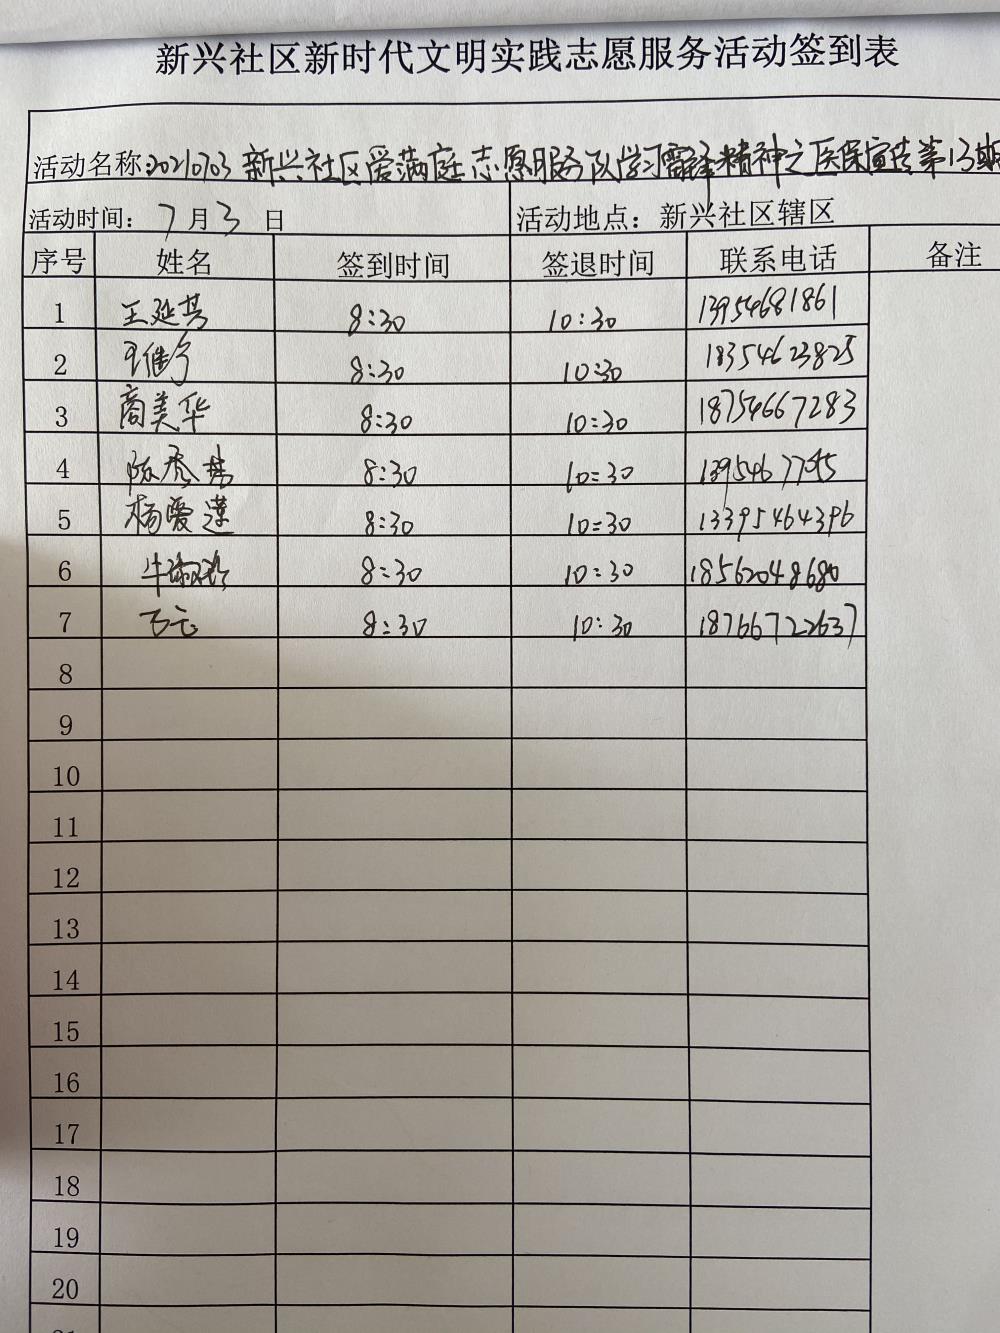 新兴社区新时代文明实践志愿服务活动签到表
活动名称:20210703 新兴社区爱满庭志愿服务队学习雷锋精神之医保宣传第13期
活动时间: 7月3日 活动地点: 新兴社区辖区
序号 姓名 签到时间 签退时间 联系电话 备注
1 王延芬 8:30 10:30 13954681861
2 8:30 10:30 18354623825
3 商美华 8:30 10:30 18754667283
4 8:30 10:30
5 杨爱莲 8:30 10:30 13395464396
6 8:30 10:30 18562048680
7 8:30 10:30 18766722637
8
9
10
11
12
13
14
15
16
17
18
19
20